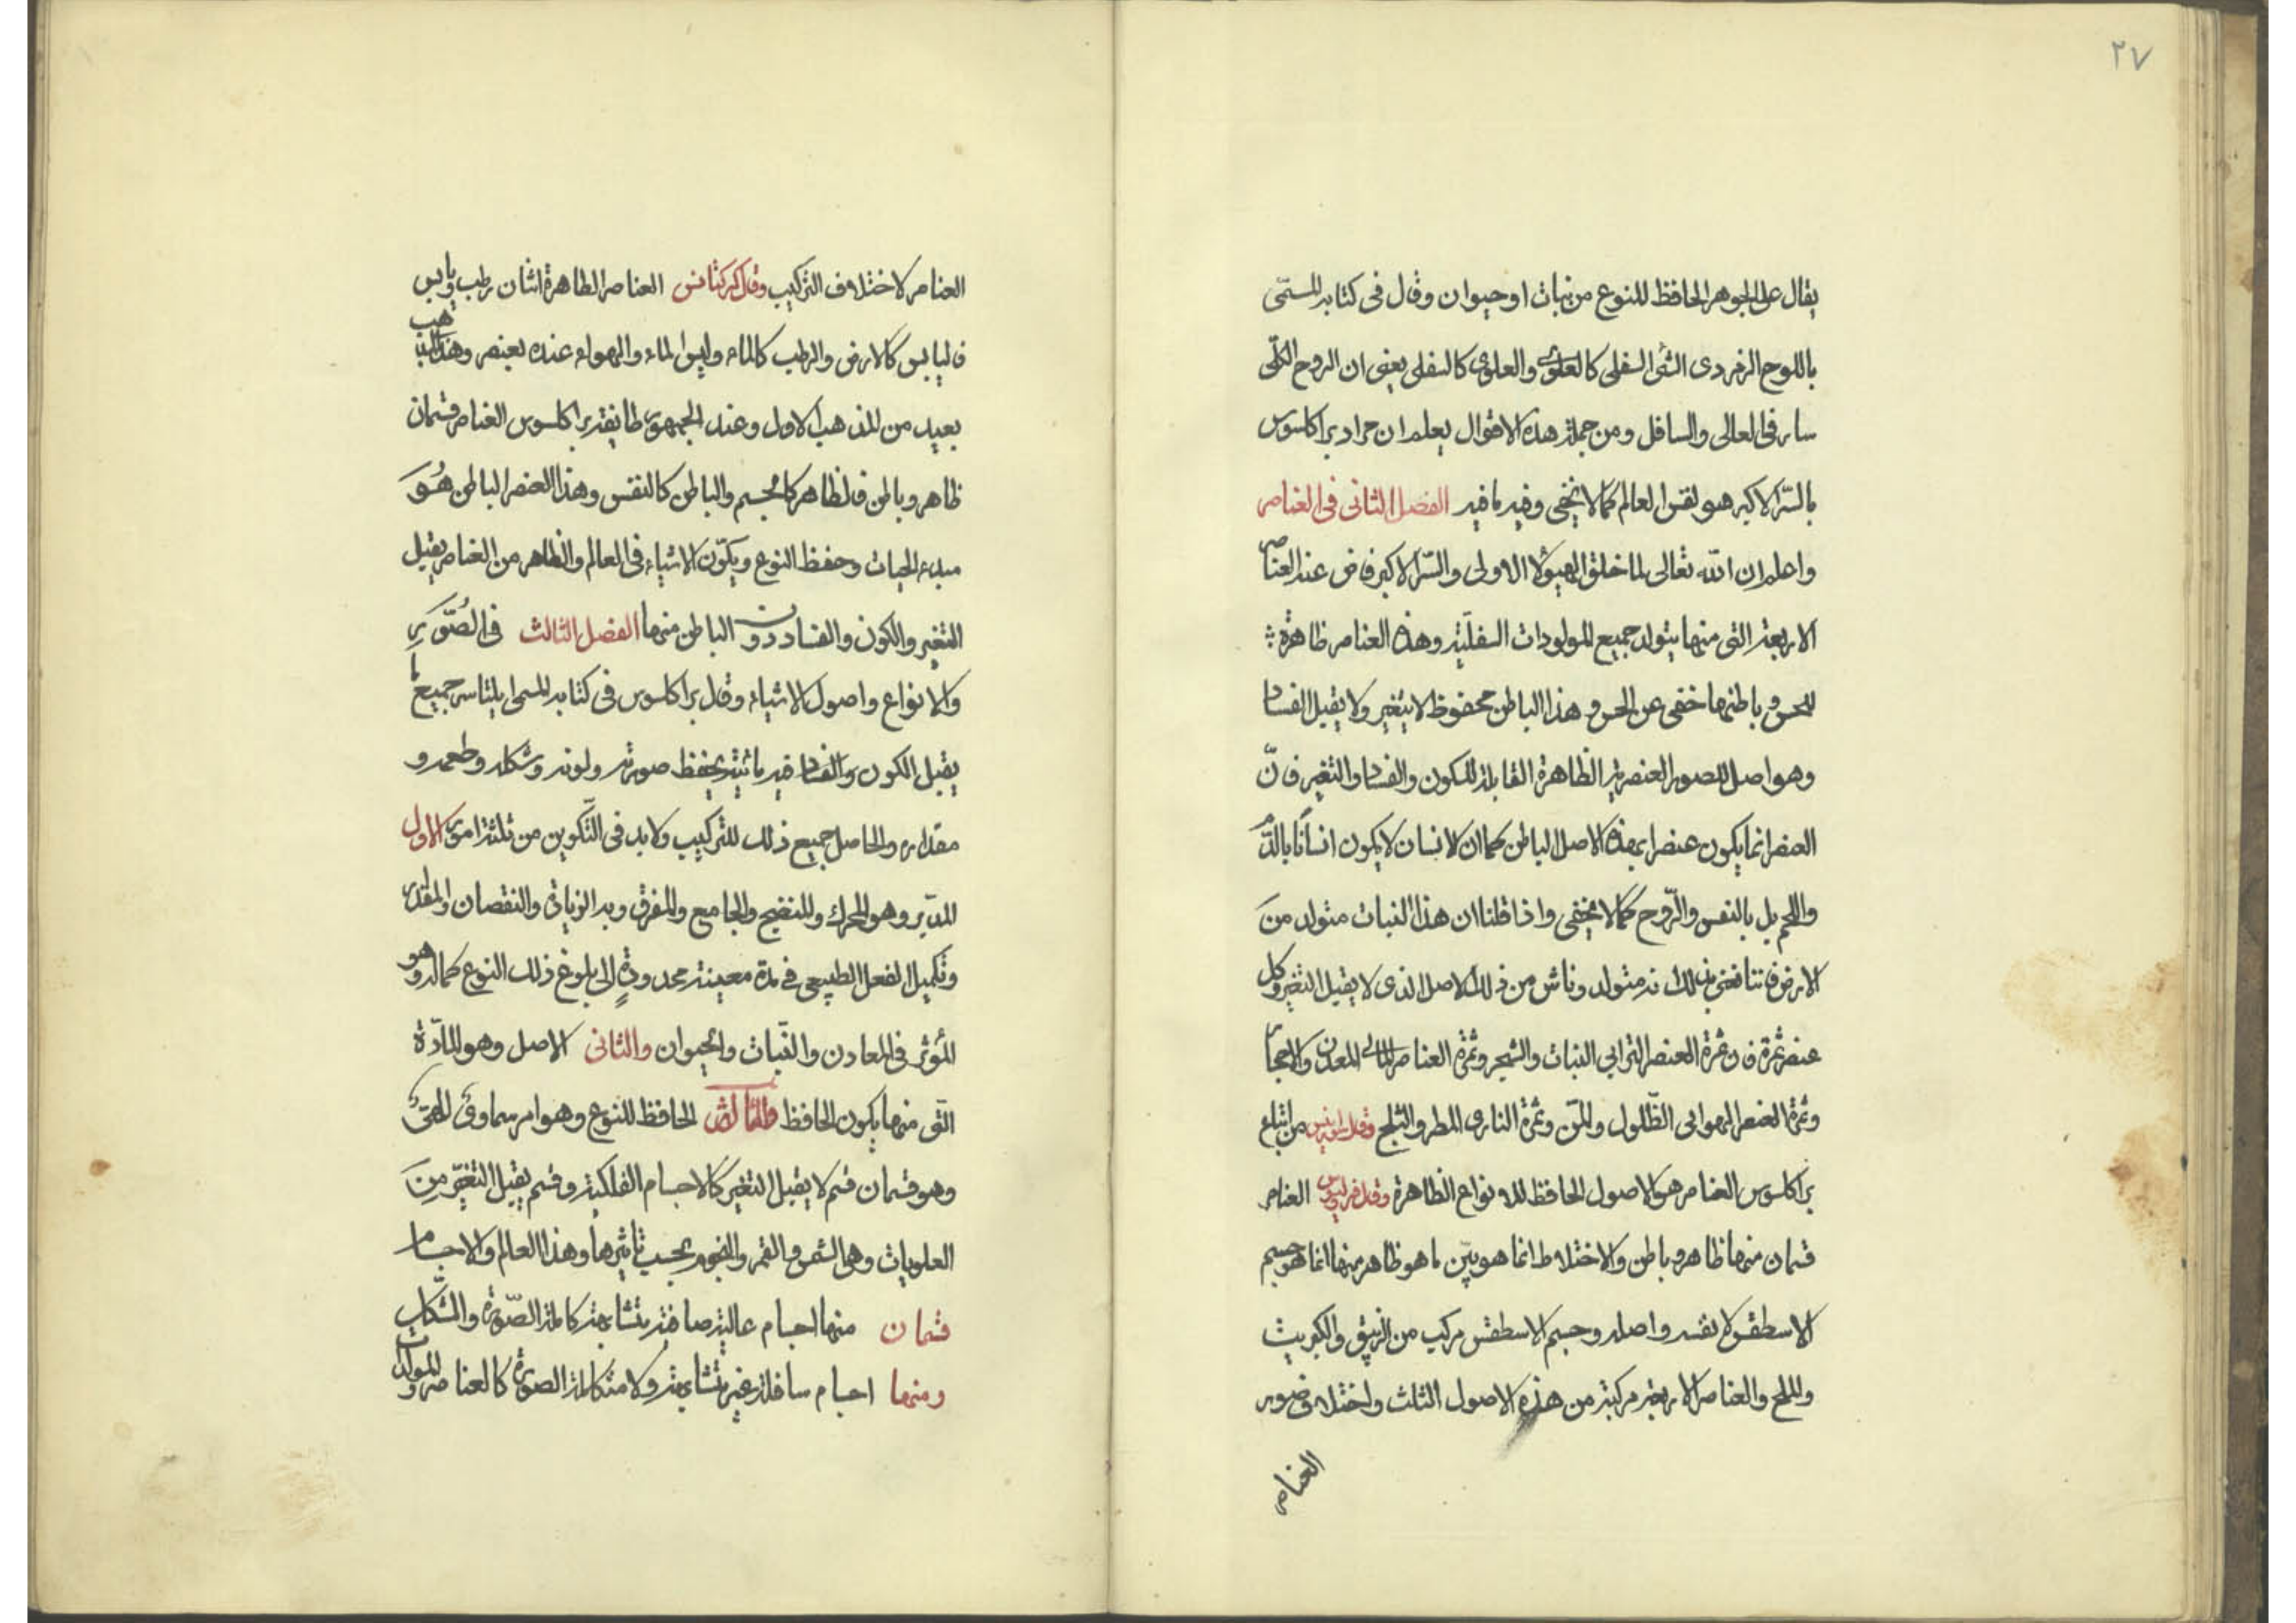 ٢٧
يقال على الجوهر الحافظ للنوع من نبات او حيوان وقال فى كتابه المسمّى
باللوح الزمردى الشئ السفلى كالعلوى والعلوى كالسفلى يعنى ان الروح الكلّى
سار فى العالى والسافل ومن جملة هذه الاقوال يعلم ان مراد براكلسوس
بالسّر الاكبر هو نفس العالم كما لا يخفى وفيه ما فيه الفصل الثانى فى العناصر
واعلم ان الله تعالى لما خلق الهيولا الاولى والسّر الاكبر فاض عنه العناصر
الاربعة التى منها يتولد جميع المولودات السفليّة وهذه العناصر ظاهرة
للحس وباطنها خفى عن الحس وهذا الباطن محفوظ لا يتغير ولا يقبل الفساد
وهو اصل للصور العنصرية الظاهرة القابلة للكون والفساد والتغير فانّ
العنصر انما يكون عنصرا بهذه الاصل الباطن كما ان الانسان لا يكون انسانًا بالدّم
واللحم بل بالنفس والرّوح كما لا يخفى واذا قلنا ان هذا النبات متولد منَ
الارض فاننا نعنى بذلك انه متولد وناش من ذلك الاصل الذى لا يقبل التغير وكل
عنصر ثمرة فان ثمرة العنصر الترابى النبات والشجر وثمرة العناصر المائى المعدن والاحجار
وثمرة العنصر الهوائى الظّلول والمّن وثمرة النارى المطر والثلج وقال من اتباع
براكلسوس العناصر هو الاصول الحافظ للانواع الظاهرة وقال العناصر
قسمان منها ظاهر وباطن والاختلاط انما هو بيّن ما هو ظاهر منها انما هو جسم
الاسطقس لا نفسه واصله وجسم الاسطقس مركب من الزيبق والكبريت
والملح والعناصر الاربعة مركبة من هذه الاصول الثلث واختلاف صور
العناصر
العناصر لاختلاف التركيب وقال العناصر الظاهرة اثنان رطب ويابس
فاليابس كالارض والرطب كالماء وليس الماء والهواء عنده بعنصر وهذا المذهب
بعيد من المذهب الاول وعند الجمهور طايفة براكلسوس العناصر قسمان
ظاهر وباطن فالظاهر كالجسم والباطن كالنفس وهذا العنصر الباطن هُوَ
مبدء الحيات وحفظ النوع ويكوّن الاشياء فى العالم والظاهر من العناصر يقبل
التغير والكون والفساد دون الباطن منها الفصل الثالث فى الصُّوَرِ
والانواع واصول الاشياء وقال براكلسوس فى كتابه المسمى جميع ما
يقبل الكون والفساد فيه ما يحفظ صورته ولونه وشكله وطعمه و
مقداره والحاصل جميع ذلك للتركيب ولابد فى التّكوين من ثلثة امور الاول
المدّبر وهو المحرك والمنضج والجامع والمفرق وبه الزيادة والنقصان والمقدار
وتكميل الفعل الطبيعى فى مدة معينة محدودةٍ الى بلوغ ذلك النوع كماله وهو
المؤثر فى المعادن والنّبات والحيوان والثانى الاصل وهو المادّة
التّى منها يكون الحافظ والثالث الحافظ للنوع وهو امر سماوى
وهو قسمان قسم لا يقبل التغير كالاجسام الفلكية وقسم يقبل التغيّر مِنَ
العلويات وهى الشمس والقمر والنجوم بحسب تاثيرها وهذا العالم والاجسام
قسمان منها اجسام عالية صافية متشابهة كاملة الصّورة والشّكل
ومنها اجسام سافلة غير متشابهة ولا متكاملة الصورة كالعناصر والمولدات